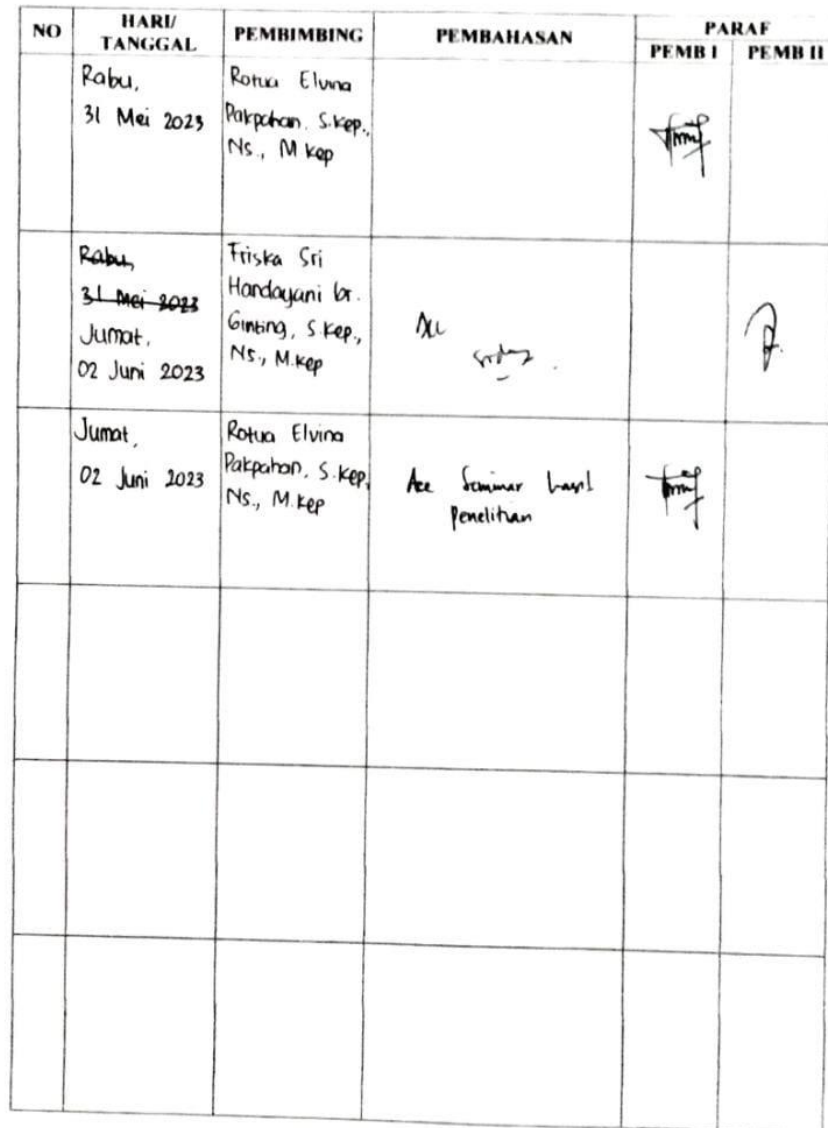 NO HARI/ PEMBIMBING PEMBAHASAN PARAF
TANGGAL PEMB I PEMB II
Rabu,
31 Mei 2023
Rotua Elvina
Pakpahan, S.Kep.,
Ns., M Kep
Rabu,
31 Mei 2023
Jumat,
02 Juni 2023
Friska Sri
Handayani br.
Ginting, S.Kep.,
Ns., M.Kep
Acc
Jumat,
02 Juni 2023
Rotua Elvina
Pakpahan, S.Kep,
Ns., M.Kep
Acc Seminar hasil
Penelitian